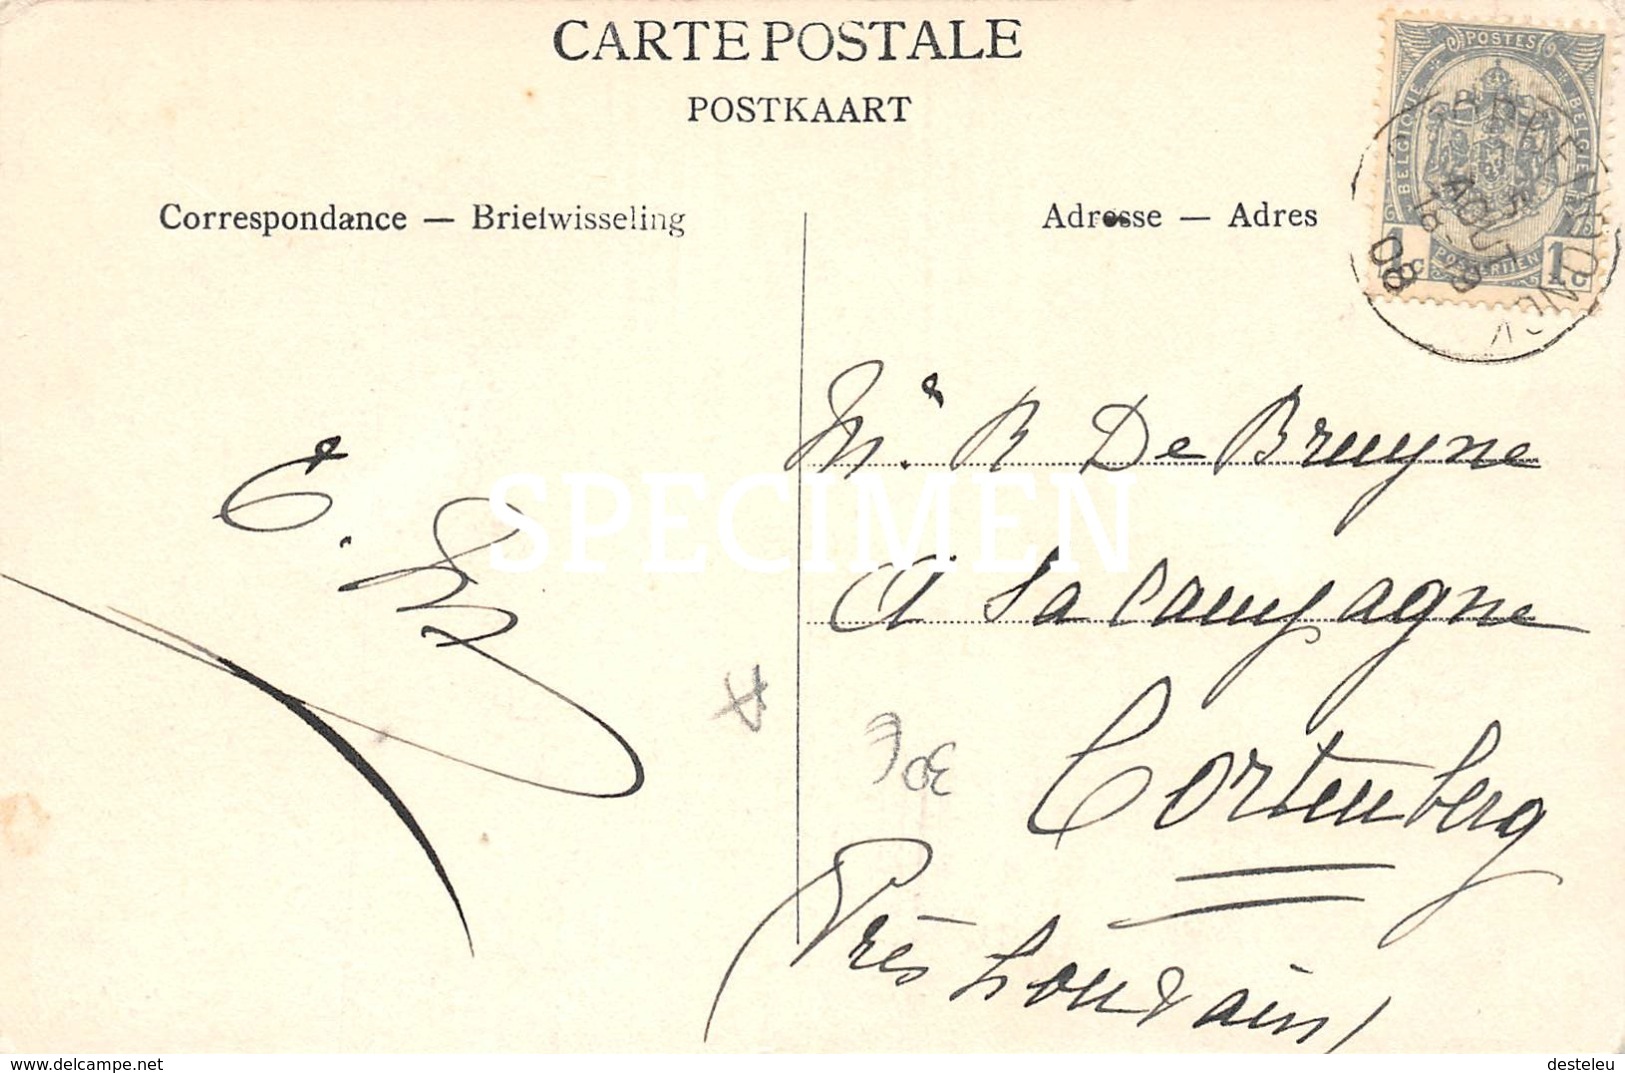 CARTE POSTALE
POSTKAART
Correspondance — Briefwisseling
Adresse — Adres
POSTES
BELGIQUE
BELGIE
1c
POSTERIJEN
1c
AOUT
18-19
08
Mr. R De Bruyne
A La Campagne
Cortenberg
(Près Louvain)
E.
30€
SPECIMEN
https://www.delcampe.net
desteleu